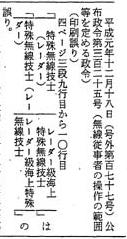 平成元年十二月十八日(号外第百七十七号)公
布政令第三百二十五号(無線従事者の操作の範囲
等を定める政令)
(印刷誤り)
四ページ三段九行目から一〇行目
「特殊無線技士
(レーダー)
特殊無線技士(レー
ダー)
は
「レーダー級海上特
殊無線技士
レーダー級海上特殊
無線技士
の
誤り。